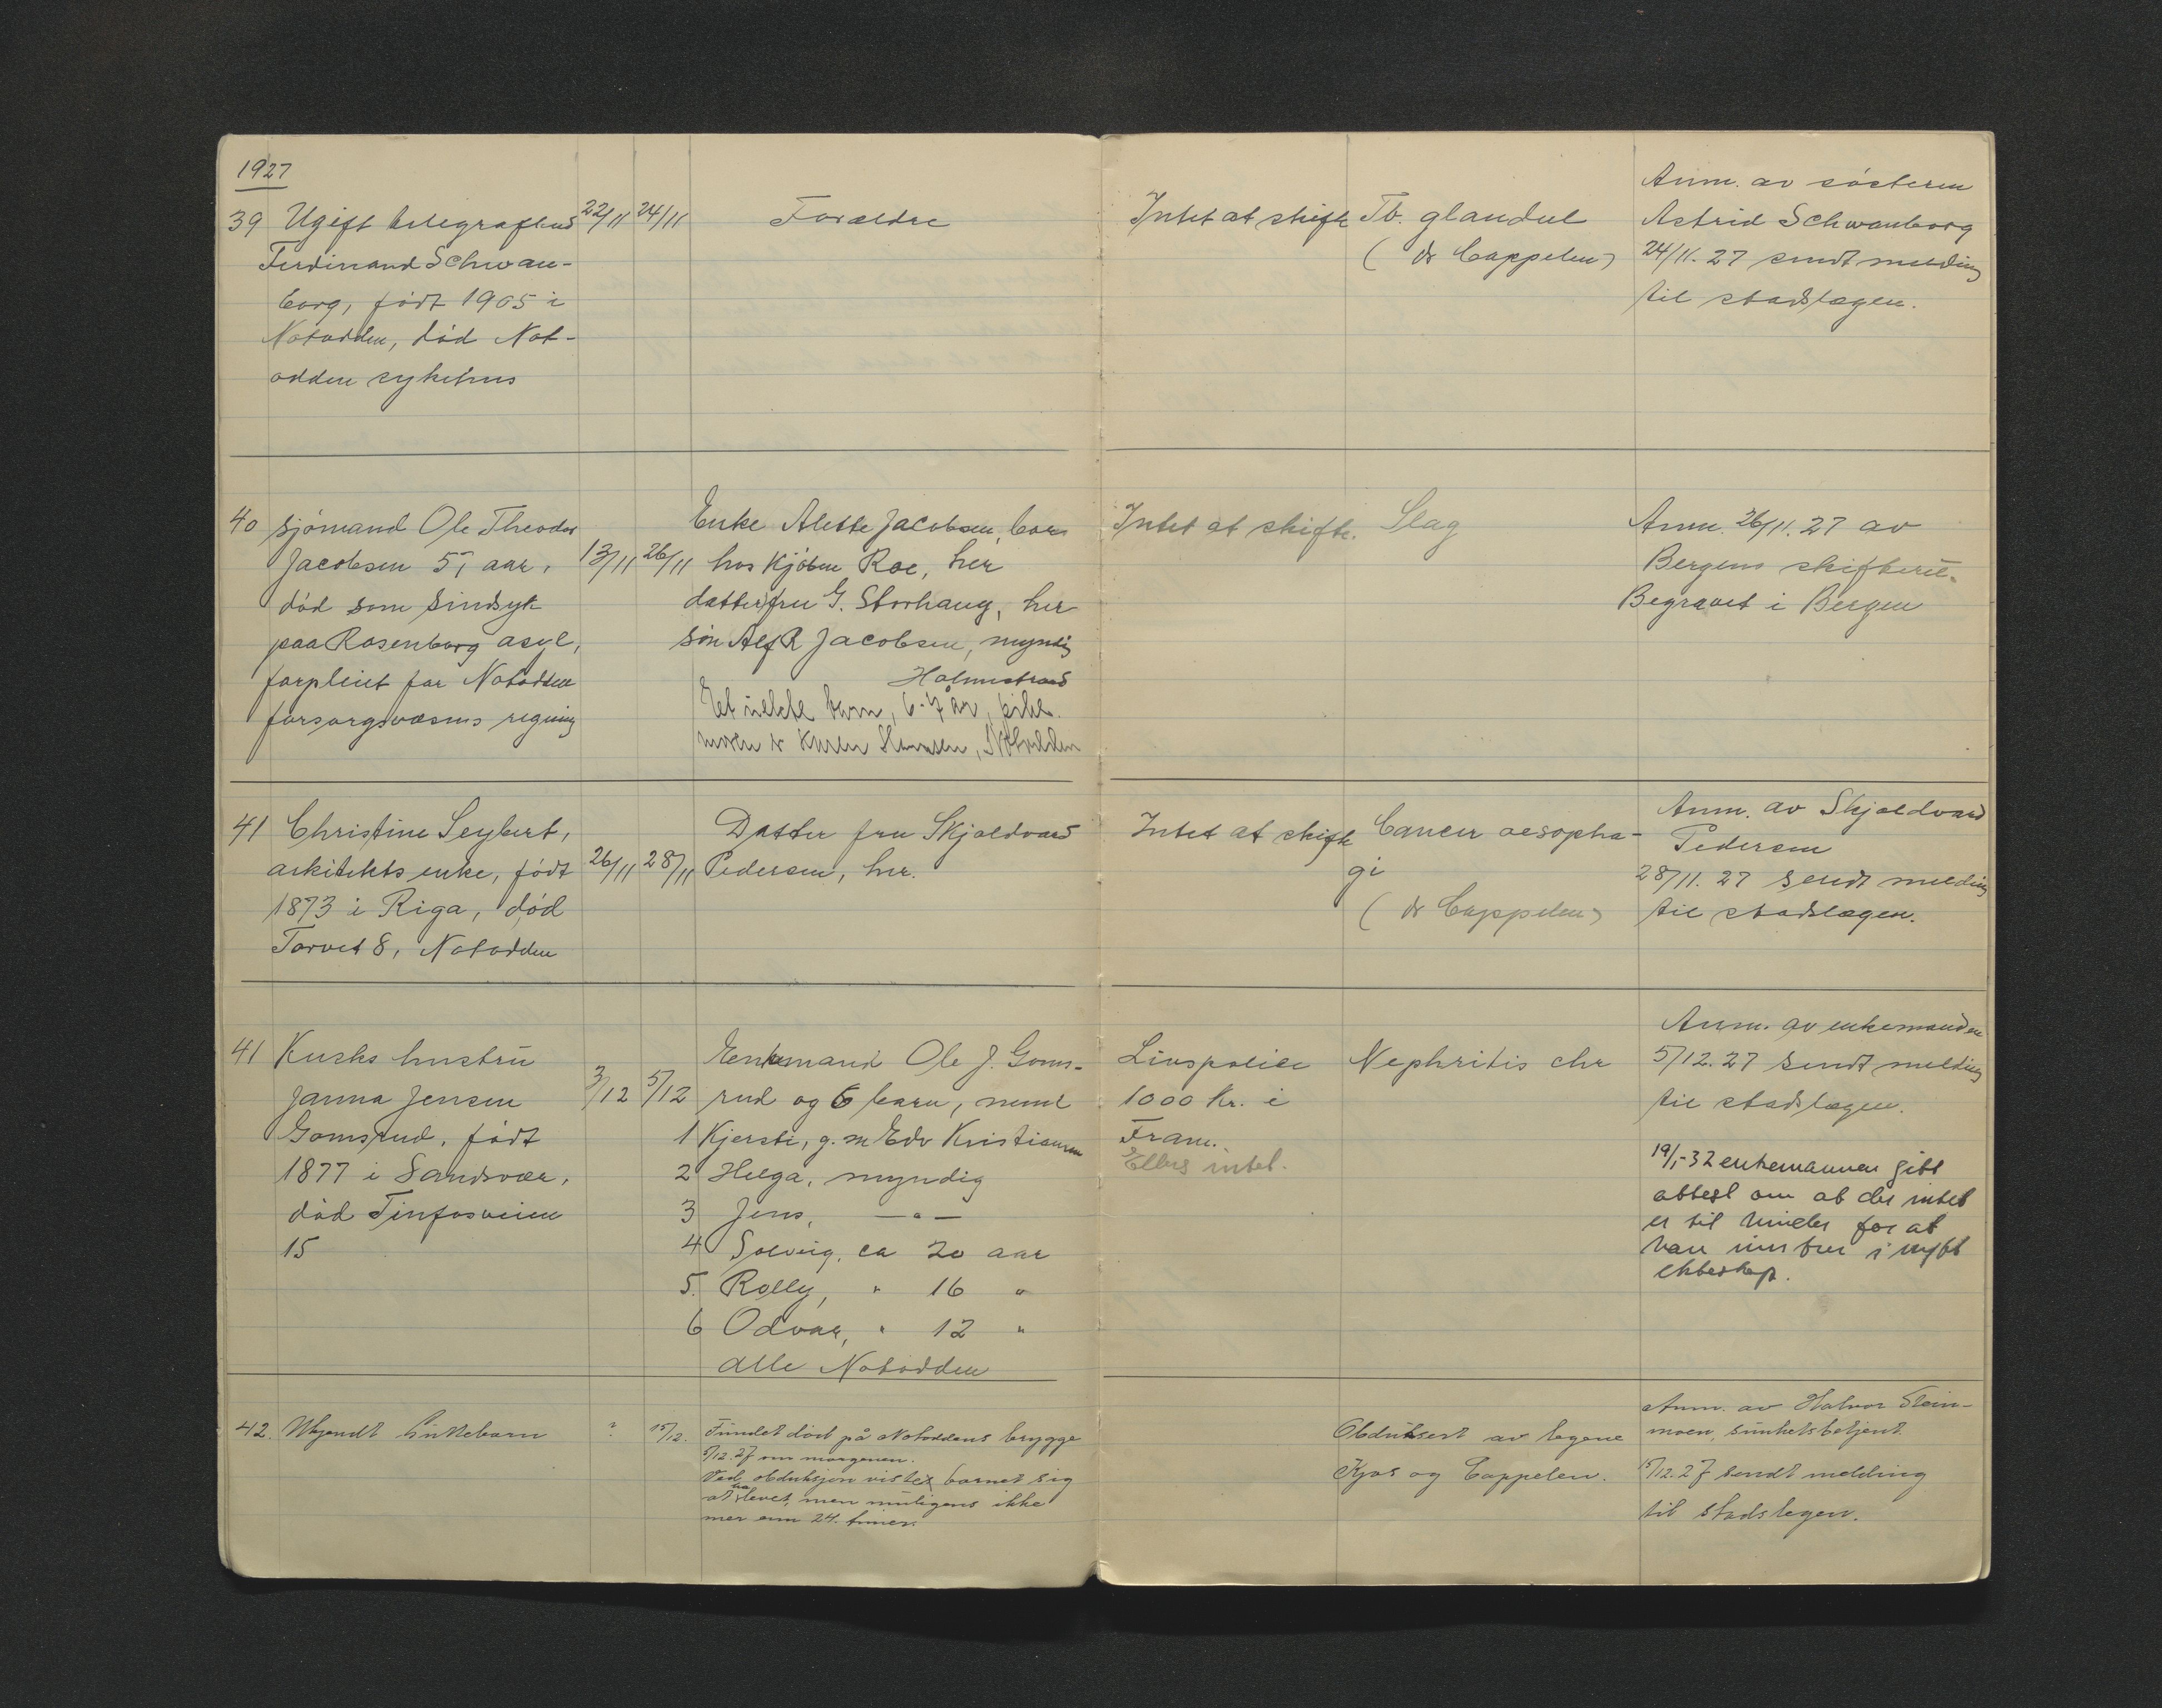 1927
39 Ugift telegrafbud 22/11 24/11 Forældre
Ferdinand Schwan-
borg, født 1905 i
Notodden, død Not-
odden sykehus
Intet at skifte
Tb. glandul
(dr Cappelen)
Anm. av søsteren
Astrid Schwanborg
24/11.27 sendt melding
til stadslægen.
40 Sjømand Ole Theodor
Jacobsen 51 aar,
død som sindsyk
paa Rosenborg asyl,
forpleiet for Notodden
forsorgsvæsens regning
13/11 26/11
Enke Alette Jacobsen, bor
hos Kjøbm Roe, her
datter fru G. Storhaug, her
søn Alf R Jacobsen, myndig
Holmestrand
Et uekte barn, 6-7 år, pike.
moren er Karen Hansen, Notodden
Intet at skifte.
Slag
Anm. 26/11.27 av
Bergens skifterett.
Begravet i Bergen
41 Christine Seybert,
arkitekts enke, født
1873 i Riga, død
Torvet 8, Notodden
26/11 28/11
Datter fru Skjoldvard
Pedersen, her.
Intet at skifte
Cancer aesopha-
gi
(dr Cappelen)
Anm. av Skjoldvard
Pedersen
28/11.27 sendt melding
til stadslægen.
41 Kusks hustru
Janna Jensen
Gomsrud, født
1877 i Sandsvær,
død Tinfosveien
15
3/12 5/12
Enkemand Ole J. Goms-
rud og 6 barn, neml
1 Kjersti, g. m Edv Kristiansen
2 Helga, myndig
3 Jens, — " —
4 Solveig, ca 20 aar
5. Rolly, " 16 "
6 Odvar, " 12 "
alle Notodden
Livspolice
1000 Kr. i
Fram.
Ellers intet.
Nephritis chr
Anm. av enkemanden
5/12.27 sendt melding
til stadslægen.
19/1-32 enkemannen gitt
attest om at der intet
er til hinder for at
han inntrer i nytt
ekteskap.
42. Ukjendt hittebarn ? 15/12.
Fundet død på Notoddens brygge
5/12.27 om morgenen.
Ved obduksjon vistes barnet sig
at ha levet, men muligens ikke
mer enn 24. timer.
Obdusert av legene
Kjos og Cappelen.
Anm. av Halvor Stein-
moen, sunhetsbetjent.
15/12.27 sendt melding
til stadslegen.